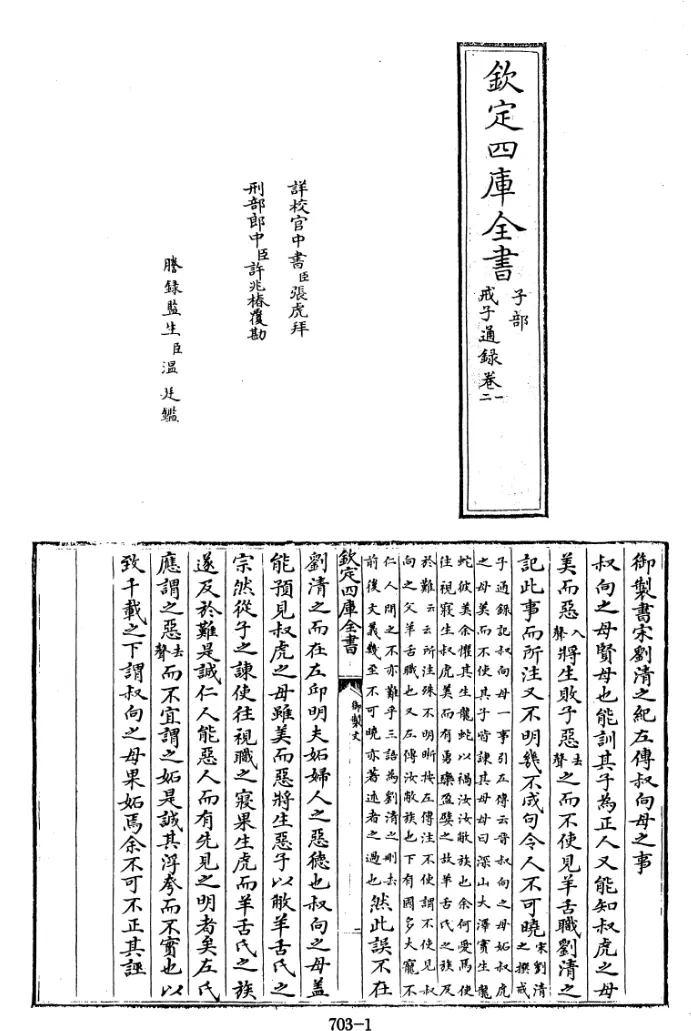 欽定四庫全書
子部
戒子通録卷一
二
詳校官中書臣張虎拜
刑部郎中臣許兆椿覆勘
謄錄監生臣温廷鑑
御製書宋劉清之紀左傳叔向母之事
叔向之母賢母也能訓其子為正人又能知叔虎之母
美而惡入聲將生敗子惡去聲之而不使見羊舌職劉清之
記此事而所注又不明幾不成句令人不可曉宋劉清之撰戒
子通録記叔向母一事引左傳云晉叔向之母妬叔虎
之母美而不使其子皆諫其母母曰深山大澤實生龍
蛇彼美余懼其生龍蛇以禍汝汝敝族也余何愛焉使
往視寢生叔虎美而有勇欒盈嬖之故羊舌氏之族及
於難云云所注殊不明晰按左傳注不使謂不使見叔
向之父羊舌職也又左傳汝敝族也下有國多大寵不
仁人間之不亦難乎三語為劉清之刪去
前後文義幾至不可曉亦著述者之過也然此誤不在
欽定四庫全書
御製文
二
劉清之而在左邱明夫妬婦人之惡德也叔向之母盖
能預見叔虎之母雖美而惡將生惡子以敝羊舌氏之
宗然從子之諫使往視職之寢果生虎而羊舌氏之族
遂及於難是誠仁人能惡人而有先見之明者矣左氏
應謂之惡去聲而不宜謂之妬是誠其浮夸而不實也以
致千載之下謂叔向之母果妬焉余不可不正其誣
703-1